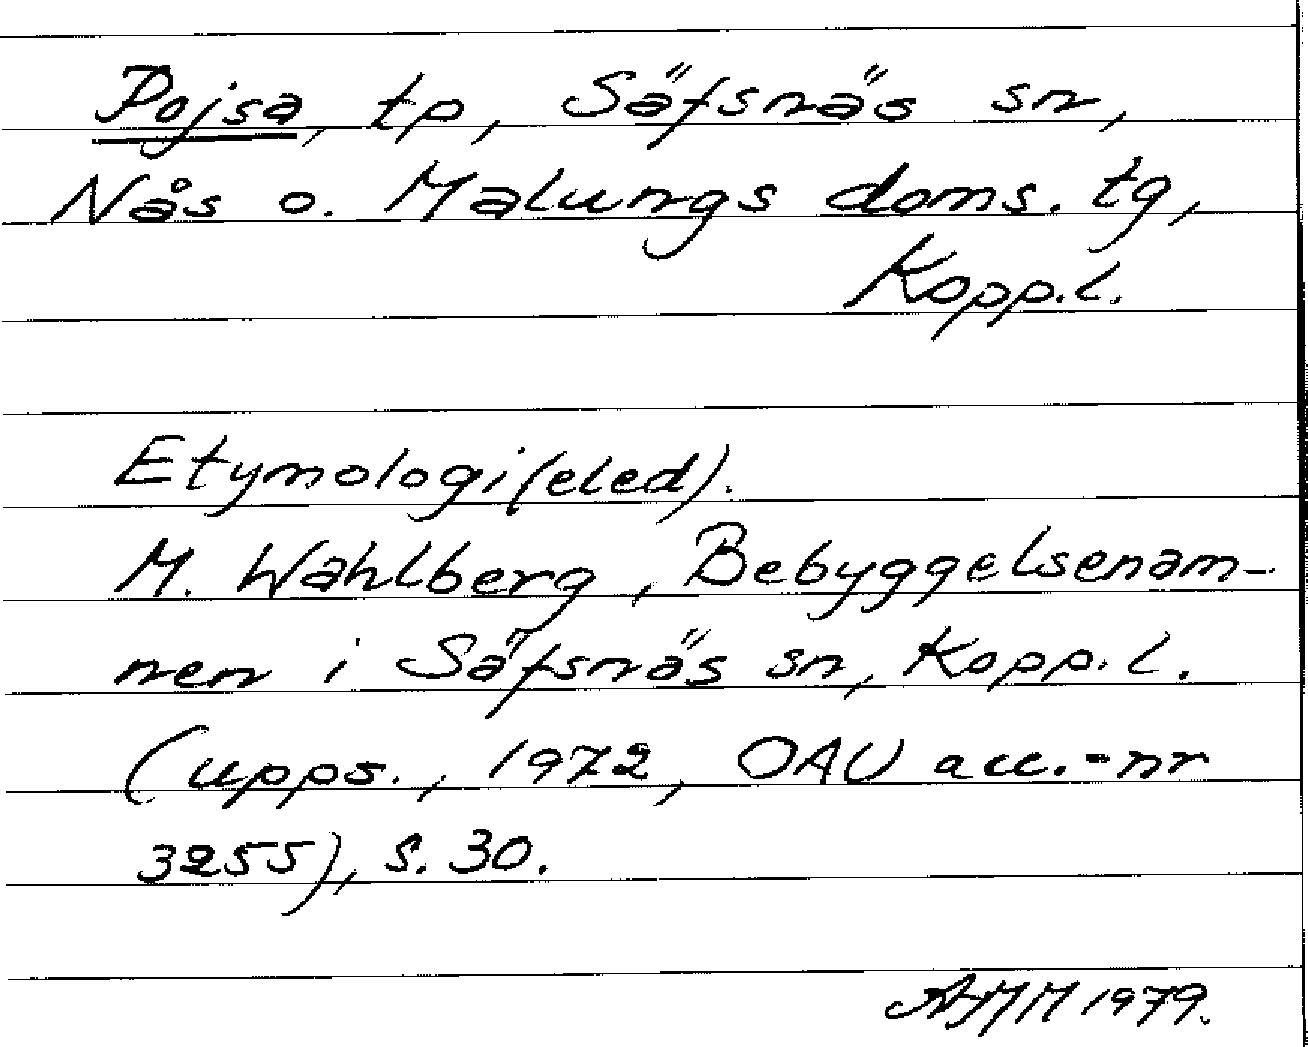 Pojsa, tp, Säfsnäs sn,
Nås o. Malungs doms. tg,
Kopp.l.
Etymologi(eled).
M. Wahlberg, Bebyggelsenam-
nen i Säfsnäs sn, Kopp. l.
(upps., 1972, OAU acc.-nr
3255), s. 30.
AMM 1979.